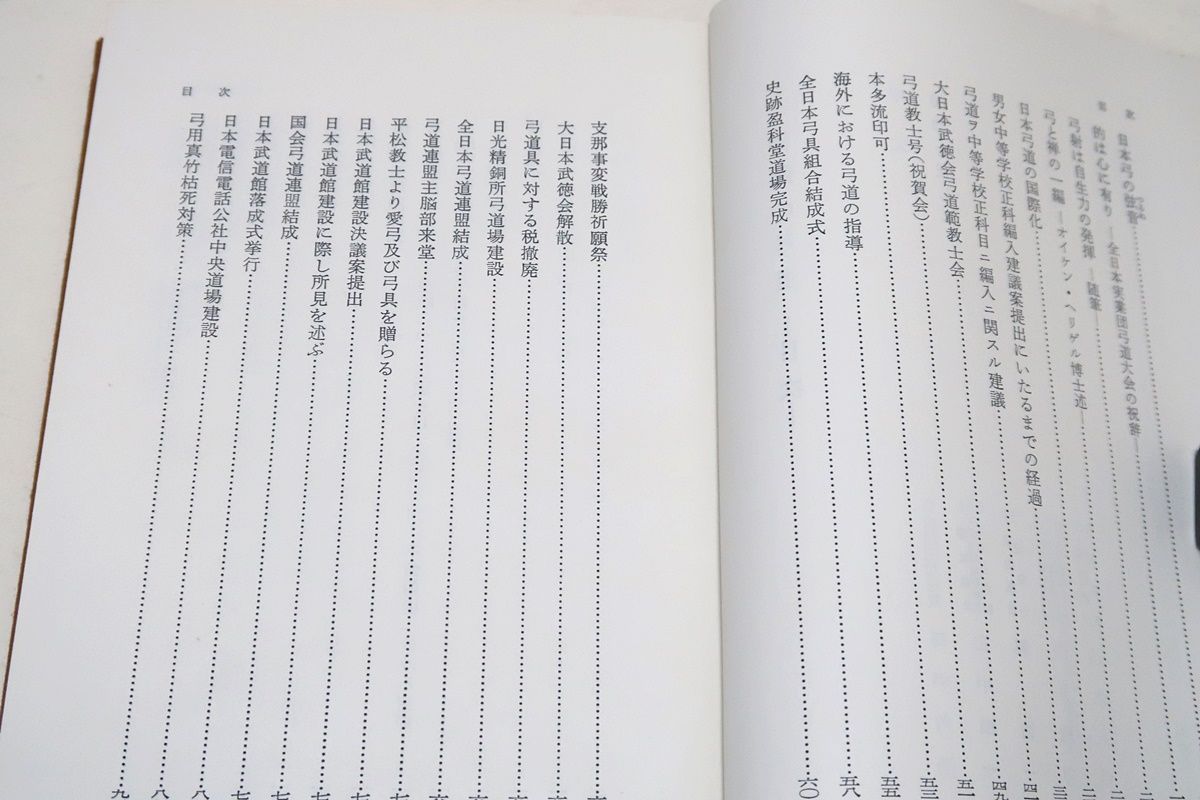 日本弓の弦音
的は心に有り―全日本実業団弓道大会の祝辞―
弓射は自生力の発揮―随筆―
弓と禅の一編―オイケン・ヘリゲル博士述―
日本弓道の国際化
男女中等学校正科編入建議案提出にいたるまでの経過
弓道ヲ中等学校正科目ニ編入ニ関スル建議 四九
大日本武徳会弓道範教士会 五一
弓道教士号(祝賀会) 五三
本多流印可 五五
海外における弓道の指導 五八
全日本弓具組合結成式 六〇
史跡盈科堂道場完成
支那事変戦勝祈願祭
大日本武徳会解散
弓道具に対する税撤廃
日光精銅所弓道場建設
全日本弓道連盟結成
弓道連盟主脳部来堂
平松教士より愛弓及び弓具を贈らる
日本武道館建設決議案提出
日本武道館建設に際し所見を述ぶ
国会弓道連盟結成
日本武道館落成式挙行
日本電信電話公社中央道場建設
弓用真竹枯死対策
目次